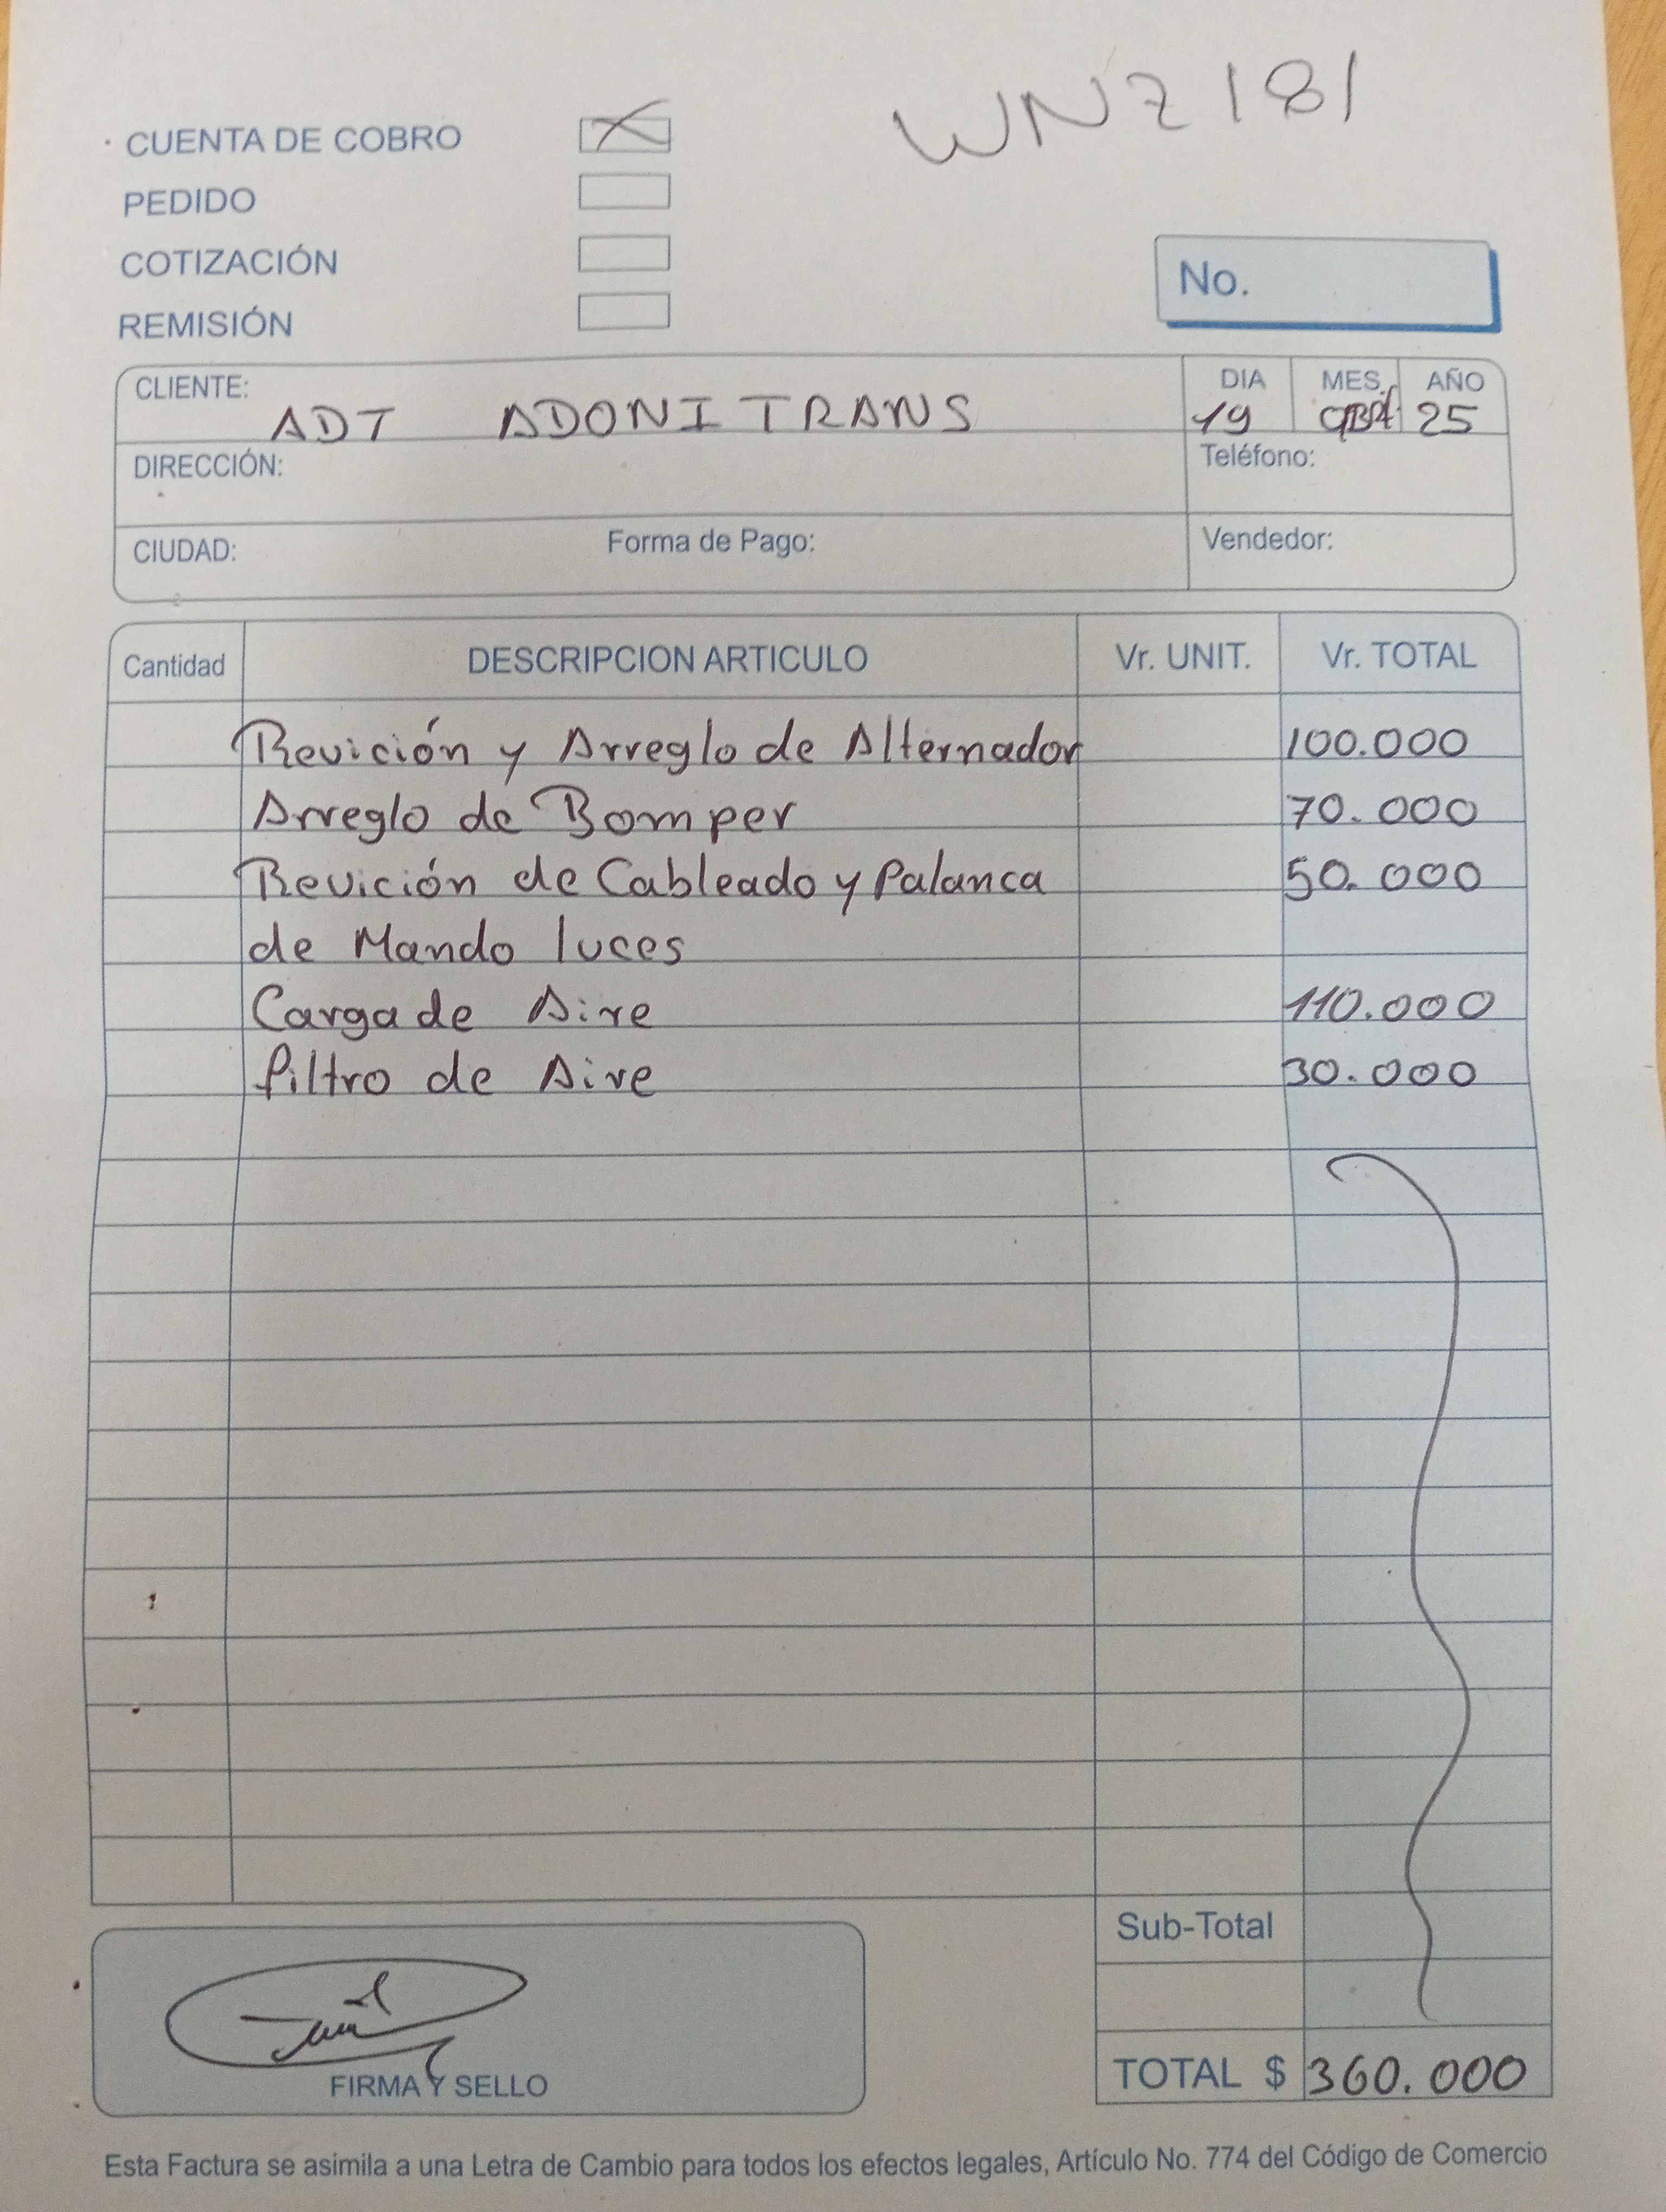 WNZ181
CUENTA DE COBRO X
PEDIDO
COTIZACIÓN
REMISIÓN
No.
CLIENTE: ADT ADONITRANS
DIA MES AÑO
19 25
DIRECCIÓN:
Teléfono:
CIUDAD: Forma de Pago: Vendedor:
Cantidad DESCRIPCION ARTICULO Vr. UNIT. Vr. TOTAL
Revición y Arreglo de Alternador 100.000
Arreglo de Bomper 70.000
Revición de Cableado y Palanca 50.000
de Mando luces
Carga de Aire 110.000
filtro de Aire 30.000
Sub-Total
TOTAL $ 360.000
FIRMA Y SELLO
Esta Factura se asimila a una Letra de Cambio para todos los efectos legales, Artículo No. 774 del Código de Comercio